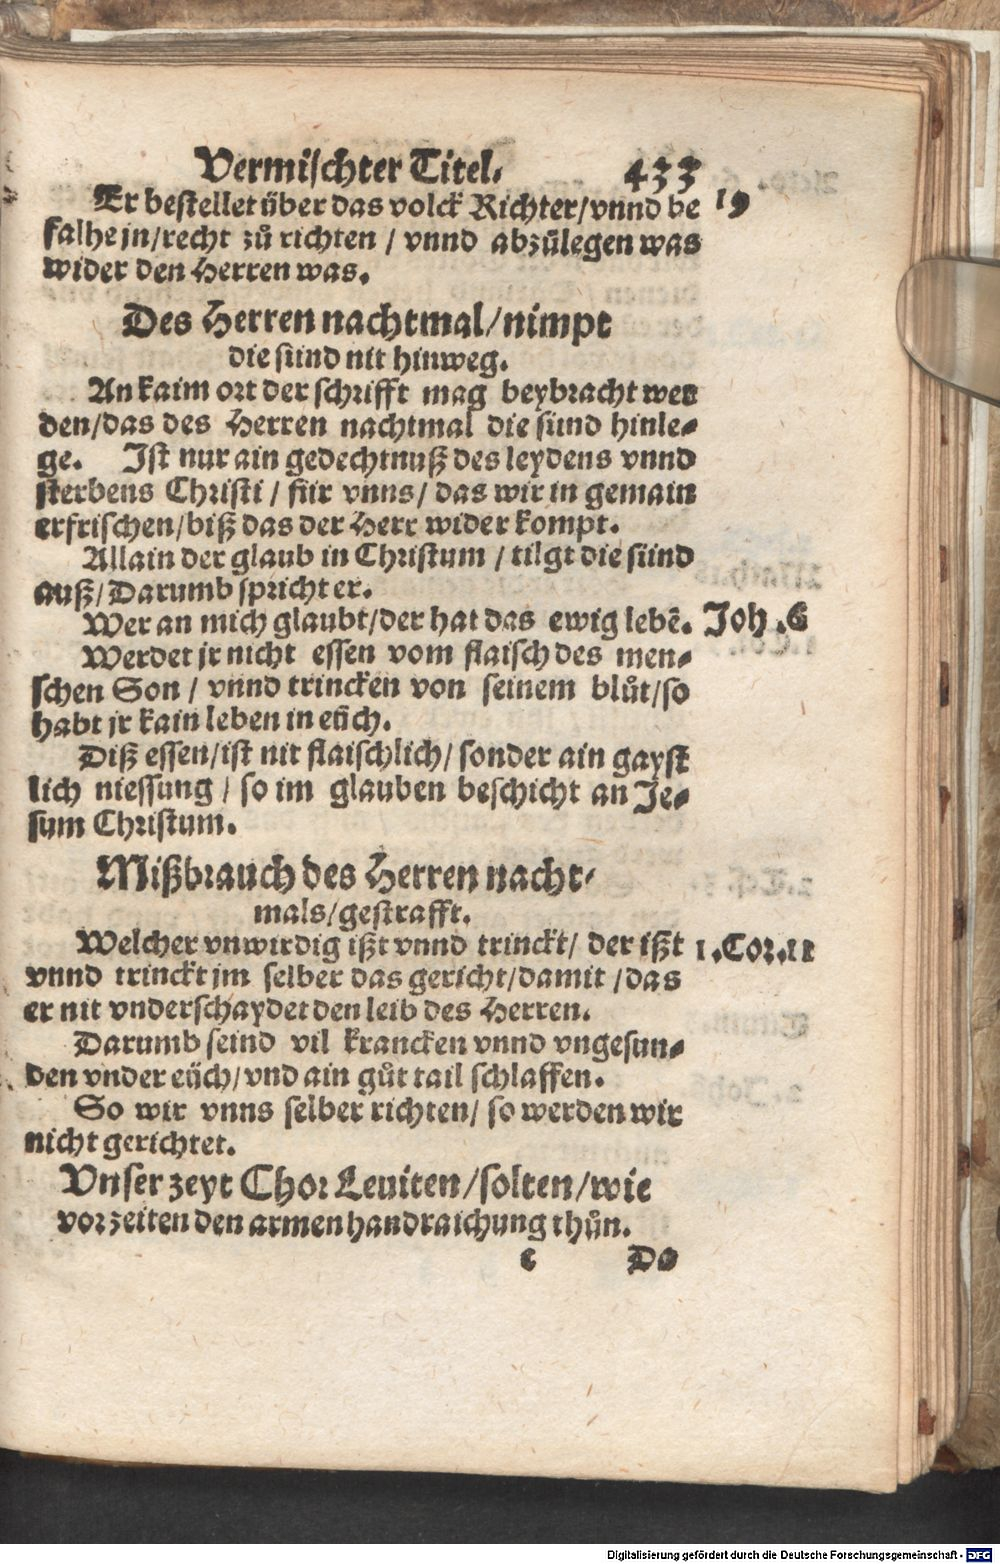 Vermischter Titel. 433
Er bestellet über das volck Richter/vnnd be 19
falhe jn/recht zů richten / vnnd abzůlegen was
wider den Herren was.
Des Herren nachtmal/nimpt
die sünd nit hinweg.
An kaim ort der schrifft mag beybracht wer
den/das des Herren nachtmal die sünd hinle-
ge. Ist nur ain gedechtnuß des leydens vnnd
sterbens Christi / für vnns / das wir in gemain
erfrischen/biß das der Herr wider kompt.
Allain der glaub in Christum / tilgt die sünd
auß/Darumb spricht er.
Wer an mich glaubt/der hat das ewig lebē. Joh .6
Werdet jr nicht essen vom flaisch des men-
schen Son / vnnd trincken von seinem blůt/so
habt jr kain leben in eüch.
Diß essen/ist nit flaischlich/ sonder ain gayst
lich niessung / so im glauben beschicht an Je-
sum Christum.
Mißbrauch des Herren nacht-
mals/gestrafft.
Welcher vnwirdig ißt vnnd trinckt/ der ißt 1.Cor.11
vnnd trinckt jm selber das gericht/damit /das
er nit vnderschaydet den leib des Herren.
Darumb seind vil krancken vnnd vngesun-
den vnder eüch/vnd ain gůt tail schlaffen.
So wir vnns selber richten/ so werden wir
nicht gerichtet.
Vnser zeyt Chor Leuiten/solten/wie
vorzeiten den armen handraichung thůn.
c Do
Digitalisierung gefördert durch die Deutsche Forschungsgemeinschaft - DFG